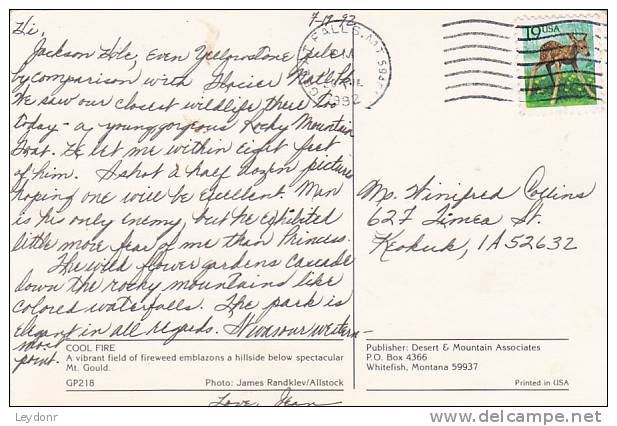 7-17-92
Hi,
Jackson Hole, Even Yellowstone pales
by comparison with Glacier Natl Pk.
We saw our closest wildlife there too
today - a young gorgeous Rocky Mountain
Goat. He let me within eight feet
of him. I shot a half dozen pictures
hoping one will be excellent. Man
is his only enemy, but he exhibited
little more fear of me than Princess.
The wild flower gardens cascade
down the rocky mountains like
colored waterfalls. The park is
elegant in all regards. It was our western-
most
point.
Love, Jean
COOL FIRE
A vibrant field of fireweed emblazons a hillside below spectacular
Mt. Gould.
GP218
Photo: James Randklev/Allstock
FALLS, MT 594
1992
19 USA
Ms. Winifred Collins
627 Timea St.
Keokuk, IA 52632
Publisher: Desert & Mountain Associates
P.O. Box 4366
Whitefish, Montana 59937
Printed in USA
Leydonr
delcampe.net